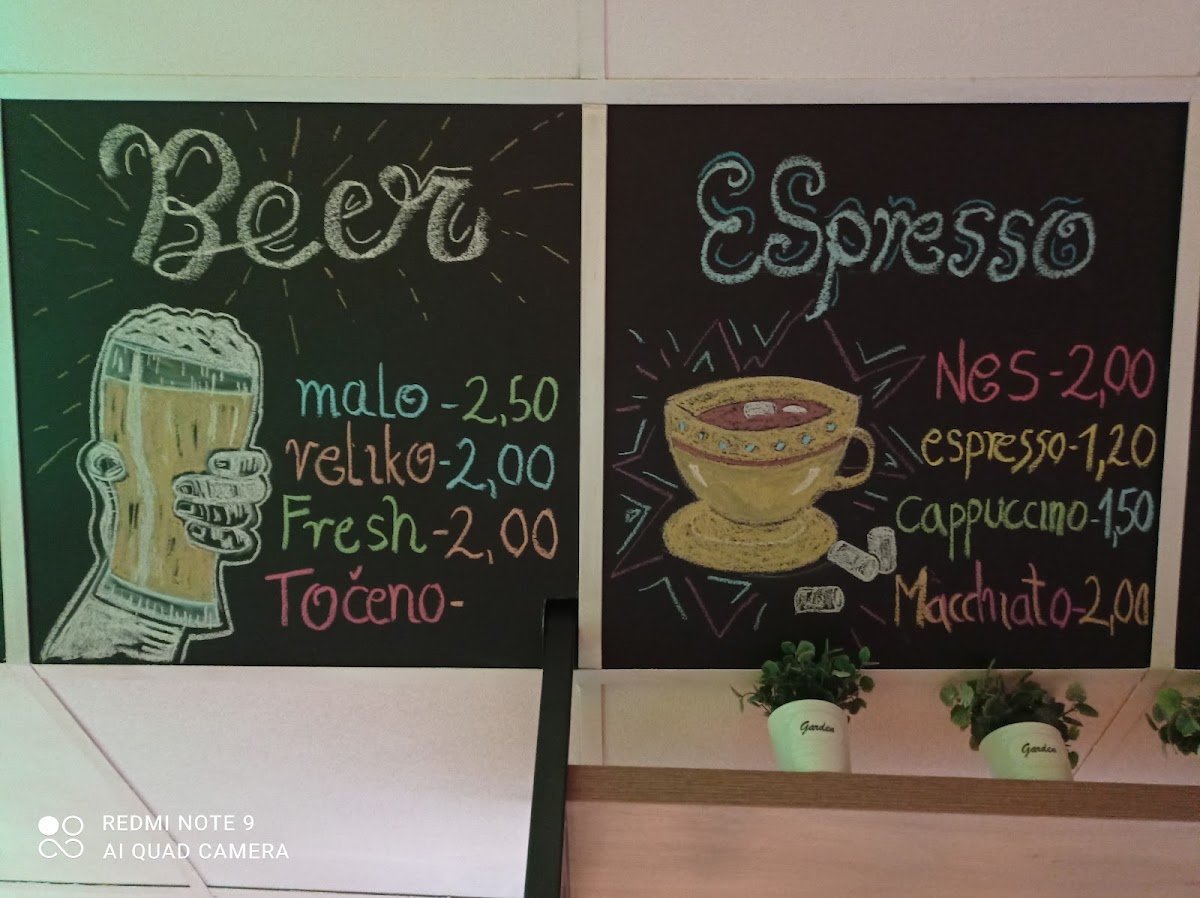 Beer
malo - 2,50
veliko - 2,00
Fresh - 2,00
Točeno -
ESpresso
Nes - 2,00
espresso - 1,20
Cappuccino - 1,50
Macchiato - 2,00
Garden
Garden
REDMI NOTE 9
AI QUAD CAMERA